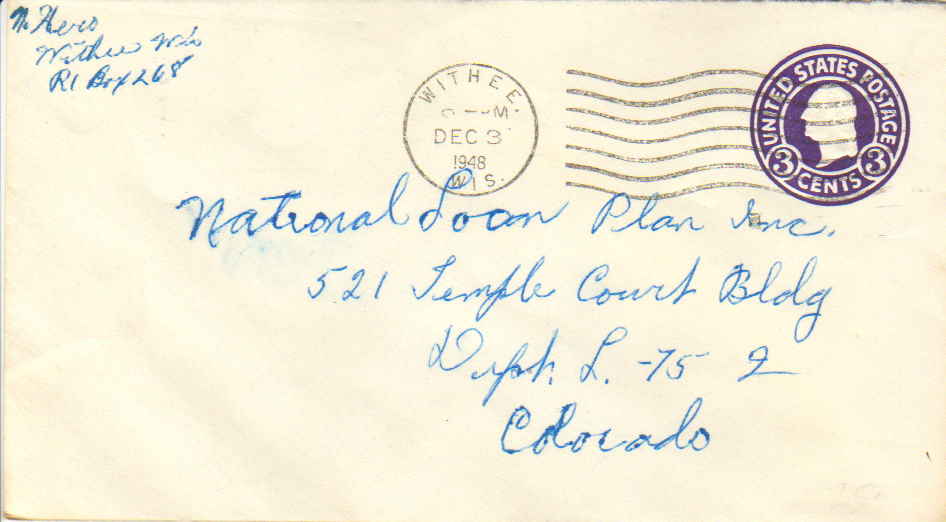 Hero
Withee Wis
R1 Box 268
WITHEE
M
DEC 3
1948
WIS.
UNITED STATES POSTAGE
3 CENTS 3
National Loan Plan Inc.
521 Temple Court Bldg
Dept. L. -75 2
Colorado